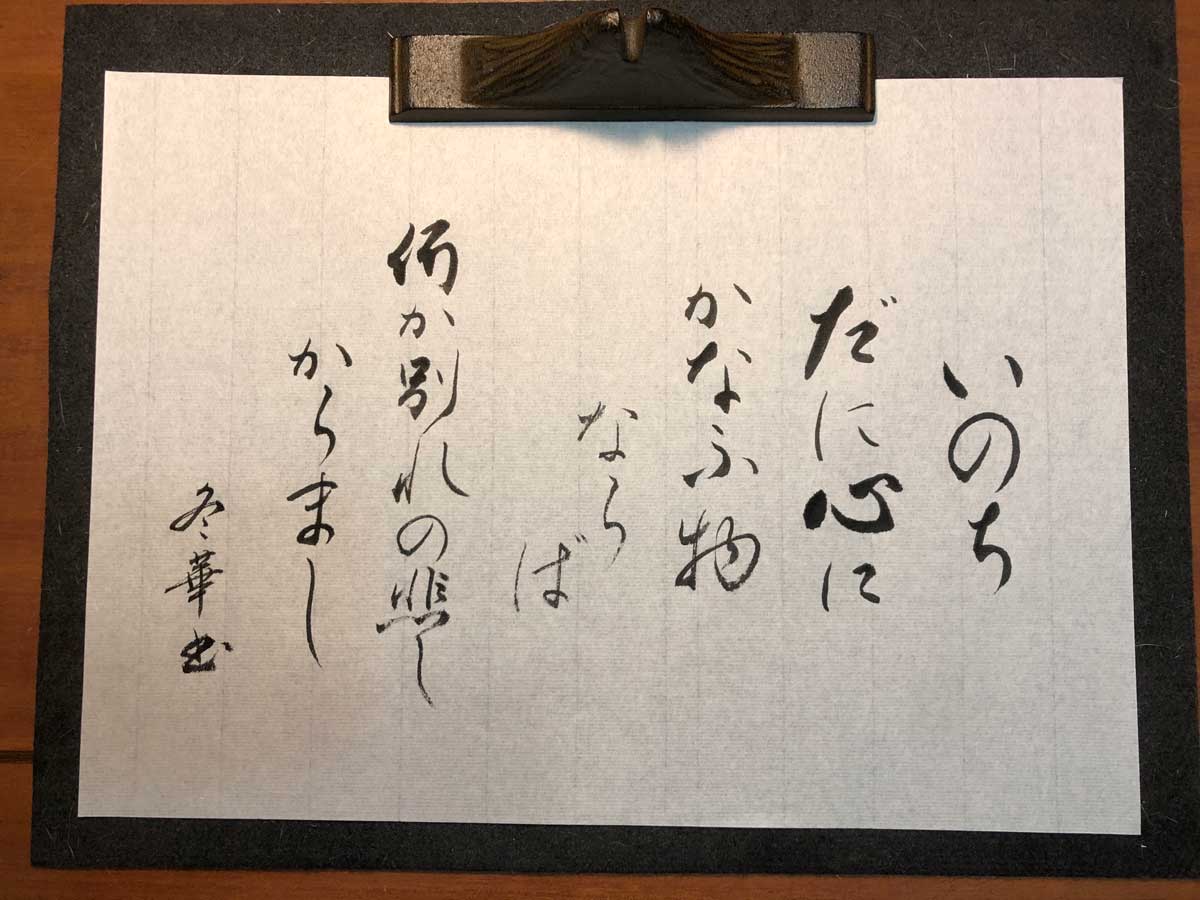 いのち
だに心に
かなふ物
なら
ば
何か別れの悲し
からまし
冬華書